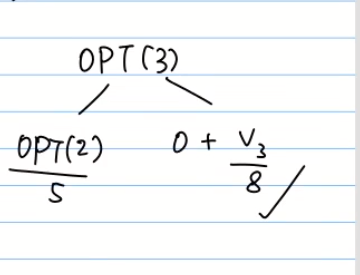 OPT(3)
OPT(2) 0 + V₃
5 8